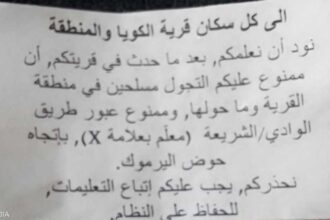 الى كل سكان قرية الكويا والمنطقة
نود أن نعلمكم, بعد ما حدث في قريتكم, أن
ممنوع عليكم التجول مسلحين في منطقة
القرية وما حولها, وممنوع عبور طريق
الوادي/الشريعة (معلّم بعلامة X), بإتجاه
حوض اليرموك.
نحذركم, يجب عليكم إتباع التعليمات,
للحفاظ على النظام.